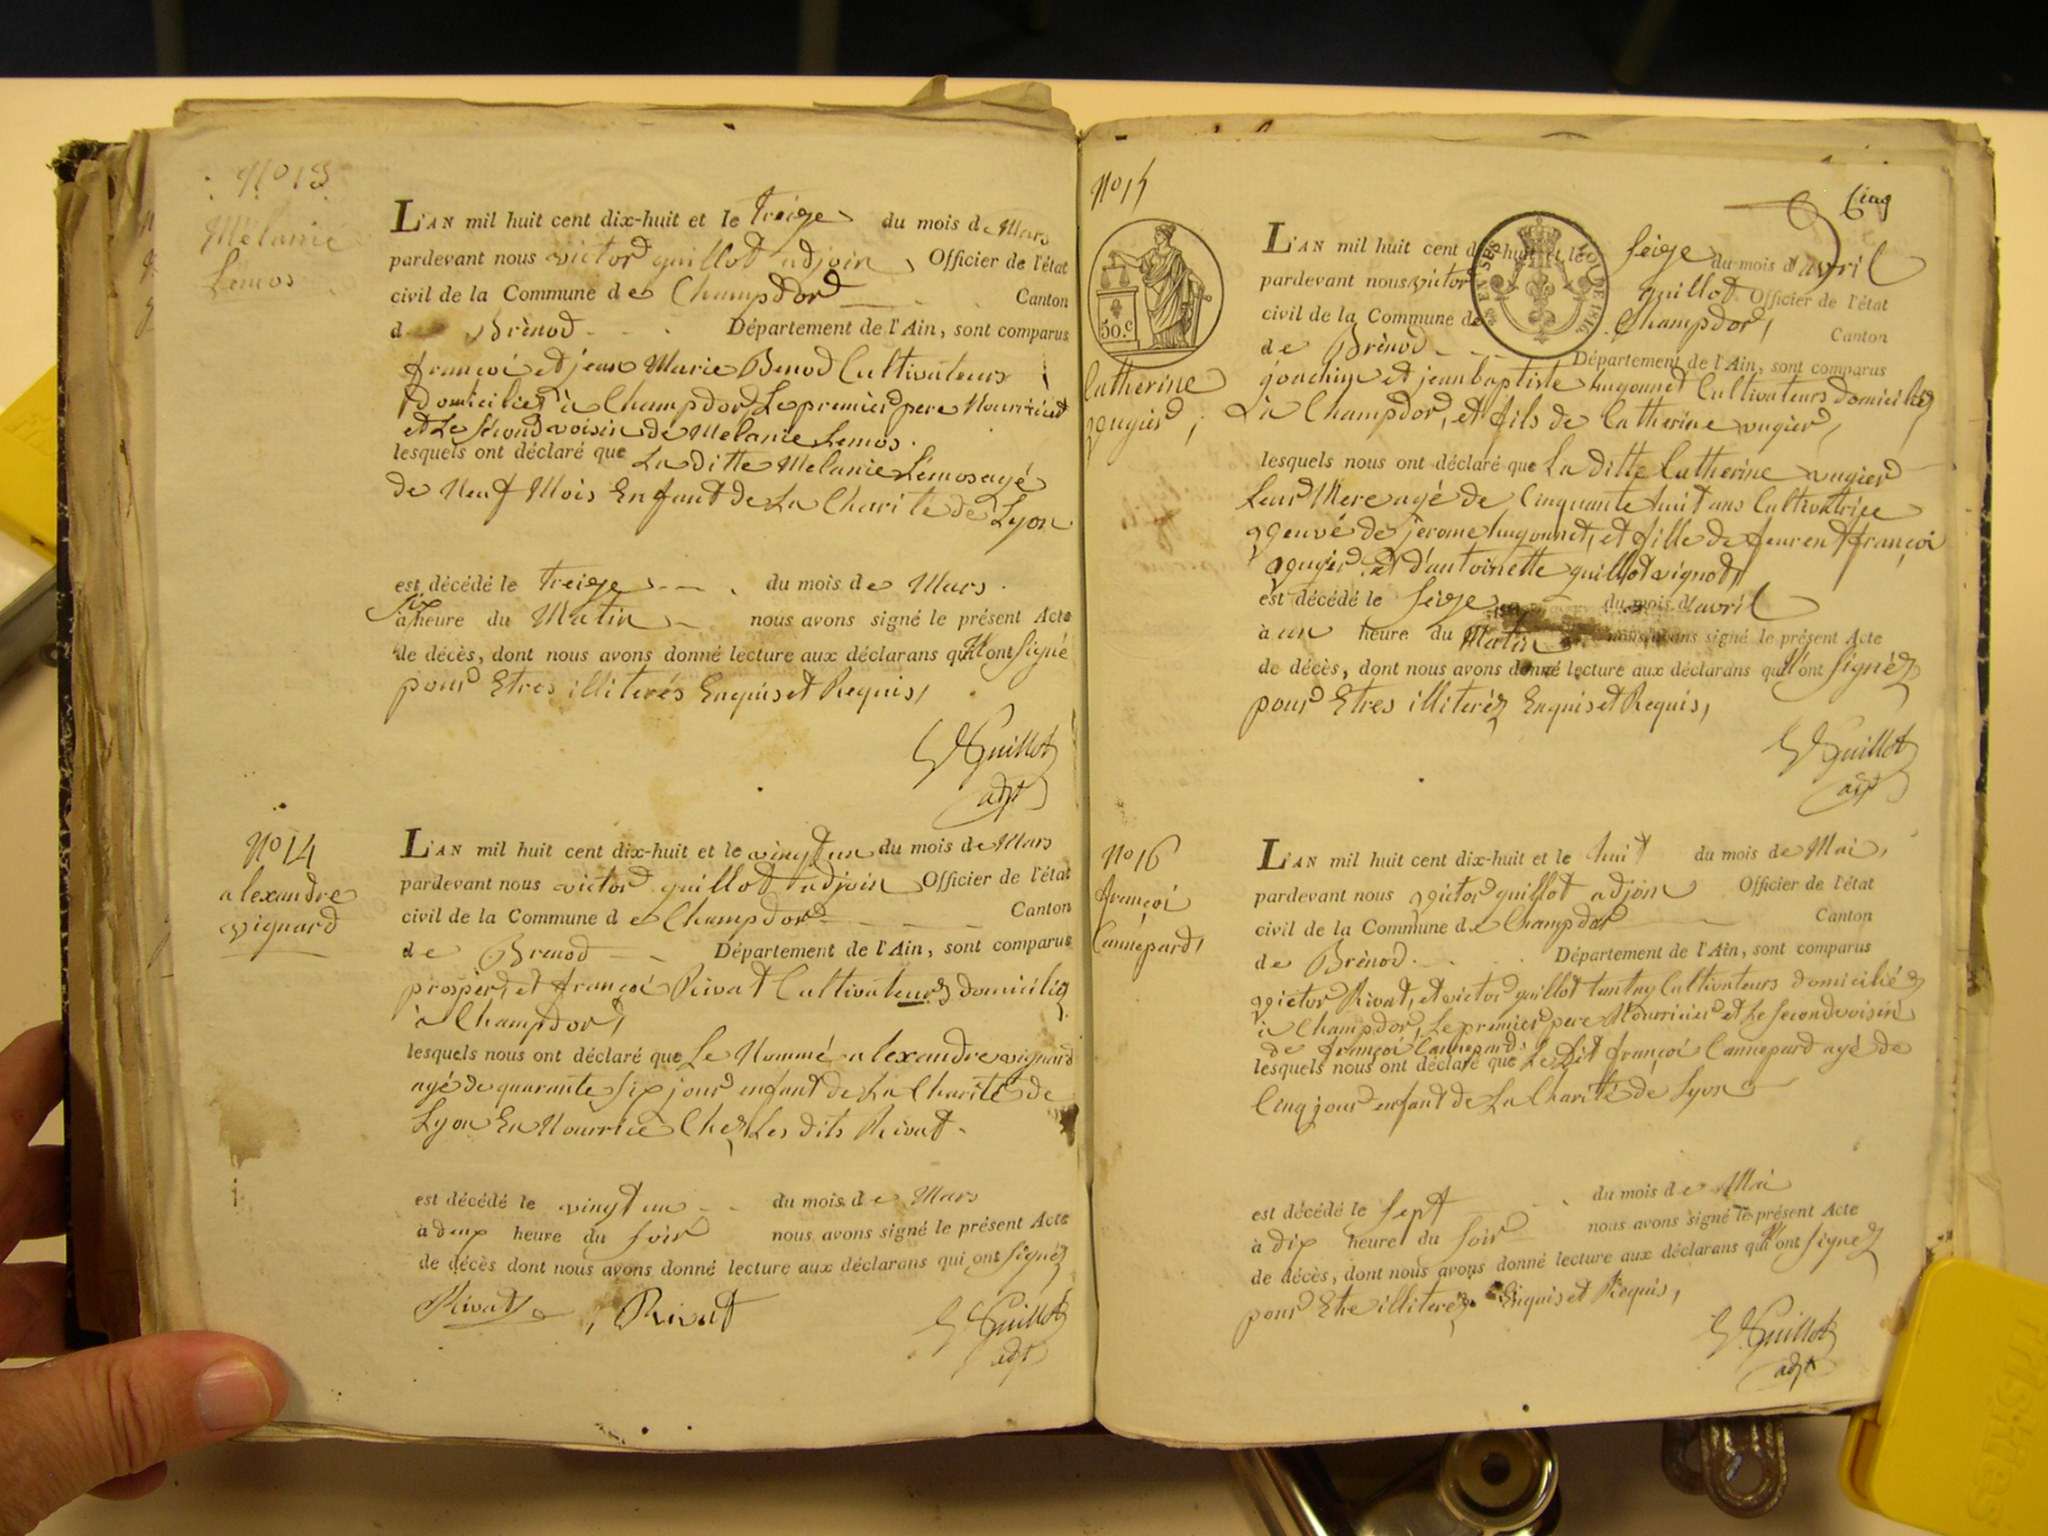 N° 13
Mélanie
Lemos
L'AN mil huit cent dix-huit et le treize du mois de Mars
pardevant nous victor guillot adjoin Officier de l'état
civil de la Commune de Champdor Canton
de Brènod Département de l'Ain, sont comparus
françoi et jean Marie Benod Cultivateurs
domicilies à Champdor Le premier pere Nourricier
et Le Second voisin de Melanie Lemos.
lesquels ont déclaré que La ditte Melanie Lemos agé
de Neuf Mois Enfant de La Charite de Lyon
est décédé le treize du mois de Mars
à Six heure du Matin nous avons signé le présent Acte
de décès, dont nous avons donné lecture aux déclarans qui N'ont Signé
pour Etres illiterés Enquis et Requis,
V Guillot
adjt
N° 14
alexandre
vignard
L'AN mil huit cent dix-huit et le vingt un du mois de Mars
pardevant nous victor guillot adjoin Officier de l'état
civil de la Commune de Champdor Canton
de Brenod Département de l'Ain, sont comparus
prosper, et françoi Rivat Cultivateurs domiciliez
à Champdor,
lesquels nous ont déclaré que Le Nommé alexandre vignard
agé de quarante Six jour enfant de La Charité de
Lyon En Nourrice Chez Les dits Rivat.
est décédé le vingt un du mois de Mars
à deux heure du Soir nous avons signé le présent Acte
de décès dont nous avons donné lecture aux déclarans qui ont Signéz
Rivat, Rivat
V Guillot
adjt
N° 15
Cinq
50.c
Catherine
vugier;
L'AN mil huit cent dix-huit et le Seize du mois d'avril
pardevant nous victor guillot Officier de l'état
civil de la Commune de Champdor, Canton
de Brènod Département de l'Ain, sont comparus
joachim et jean baptiste hugonnet Cultivateurs domiciliez
à Champdor, et fils de Catherine vugier,
lesquels nous ont déclaré que La ditte Catherine vugier
Leur Mere agé de Cinquante huit ans Cultivatrice
veuvé de jerome hugonnet, et fille de françoi
vugier et d'antoinette guillot vignot,
est décédé le Seize du mois d'avril
à un heure du Matin nous avons signé le présent Acte
de décès, dont nous avons donné lecture aux déclarans qui N'ont Signéz
pour Etres illiteréz Enquis et Requis,
V Guillot
adjt
N° 16
françoi
Cannepard,
L'AN mil huit cent dix-huit et le huit du mois de Mai,
pardevant nous victor guillot adjoin Officier de l'état
civil de la Commune de Champdor Canton
de Brènod. Département de l'Ain, sont comparus
victor Rivat, et victor guillot Cultivateurs domiciliéz
à Champdor, Le premier pere Nourricier et Le Second voisin
de françoi Cannepard.
lesquels nous ont déclaré que Le Dit françoi Cannepard agé de
Cinq jour enfant de La Charité de Lyon
est décédé le Sept du mois de Mai
à dix heure du Soir nous avons signé le présent Acte
de décès, dont nous avons donné lecture aux déclarans qui N'ont Signéz
pour Etre illiteréz. Enquis et Requis,
V Guillot
adjt